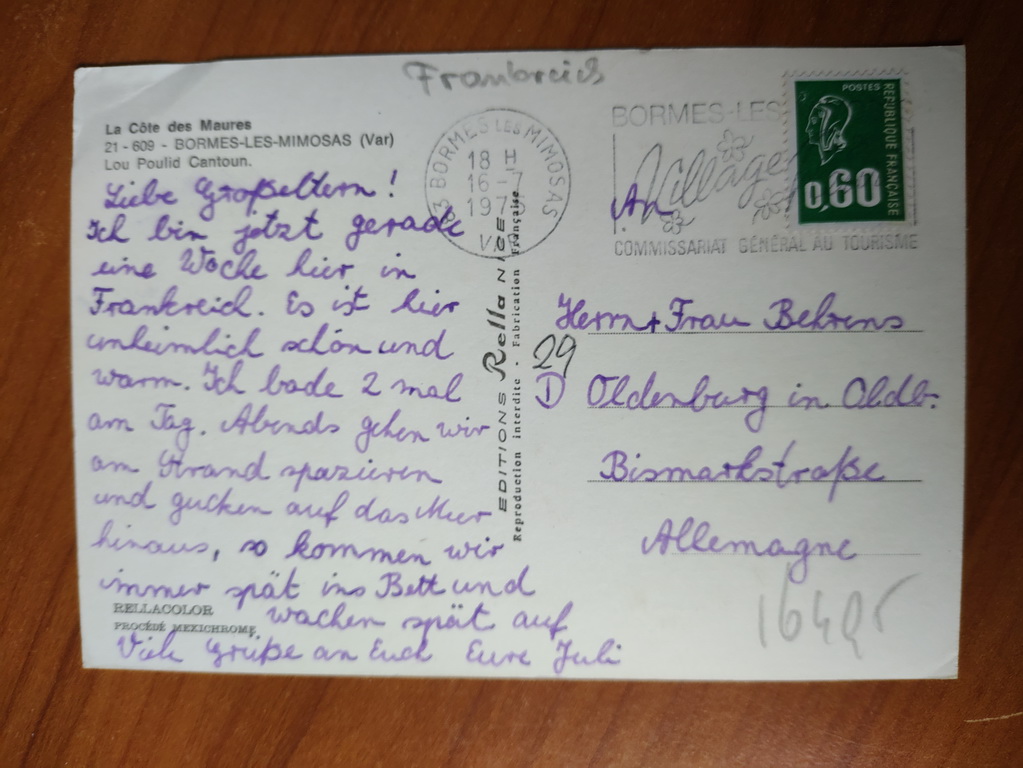 Frankreich
La Côte des Maures
21 - 609 - BORMES-LES-MIMOSAS (Var)
Lou Poulid Cantoun.
Liebe Großeltern!
Ich bin jetzt gerade
eine Woche hier in
Frankreich. Es ist hier
unheimlich schön und
warm. Ich bade 2 mal
am Tag. Abends gehen wir
am Strand spazieren
und gucken auf das Meer
hinaus, so kommen wir
immer spät ins Bett und
wachen spät auf
Viele Grüße an Euch Eure Juli
RELLACOLOR
PROCÉDÉ MEXICHROME
EDITIONS Rella NICE
Reproduction interdite - Fabrication Française
83 BORMES LES MIMOSAS
18 H
16 - 7
VAR
BORMES-LES
Village
COMMISSARIAT GÉNÉRAL AU TOURISME
POSTES
REPUBLIQUE FRANÇAISE
0,60
An
Herrn + Frau Behrens
29
D Oldenburg in Oldb.
Bismarkstraße
Allemagne